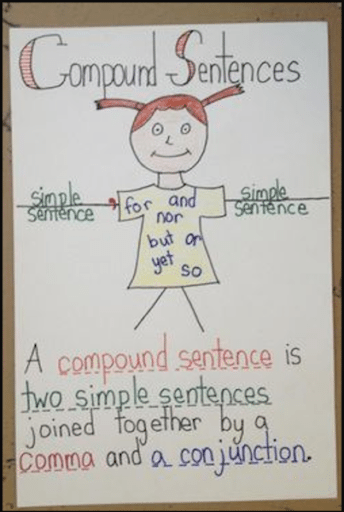 Compound Sentences
simple sentence , for and simple sentence
nor
but or
yet
so
A compound sentence is
two simple sentences
joined together by a
comma and a conjunction.